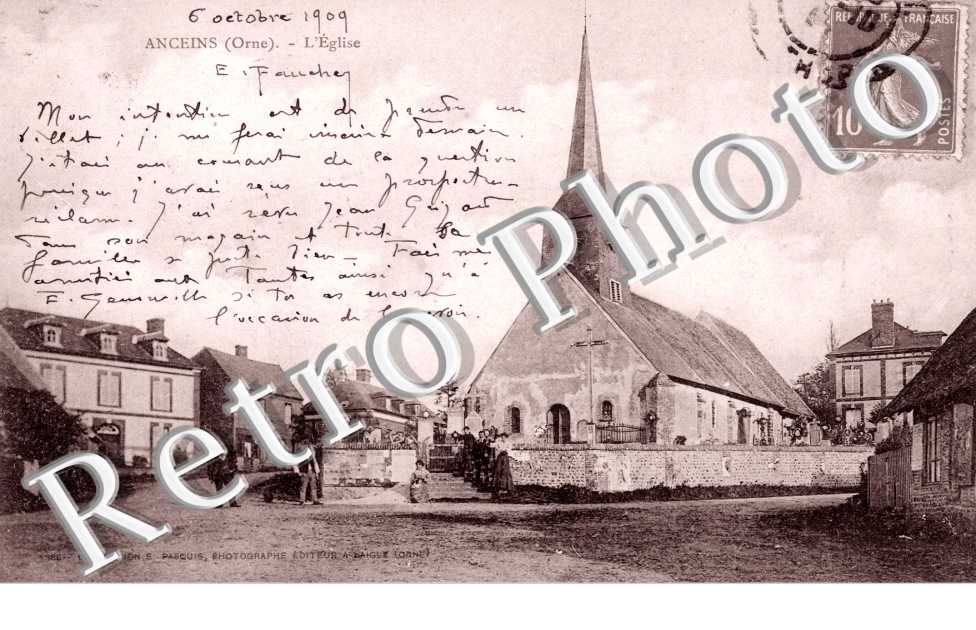 6 octobre 1909
ANCEINS (Orne). - L'Église
E. Faucher
Mon intention est de prendre un
billet ; j' me ferai inscrire demain.
J'étais au courant de la question
puisque j'avais reçu un prospectus-
réclame. J'ai revu Jean
dans son magasin et toute sa
famille
amitiés aux Tantes ainsi qu'à
E. si tu as encore
l'occasion de le voir.
RÉPUBLIQUE FRANÇAISE
10
POSTES
Retro Photo Retro Photo
E. PASQUIS, PHOTOGRAPHE ÉDITEUR A LAIGLE (ORNE)